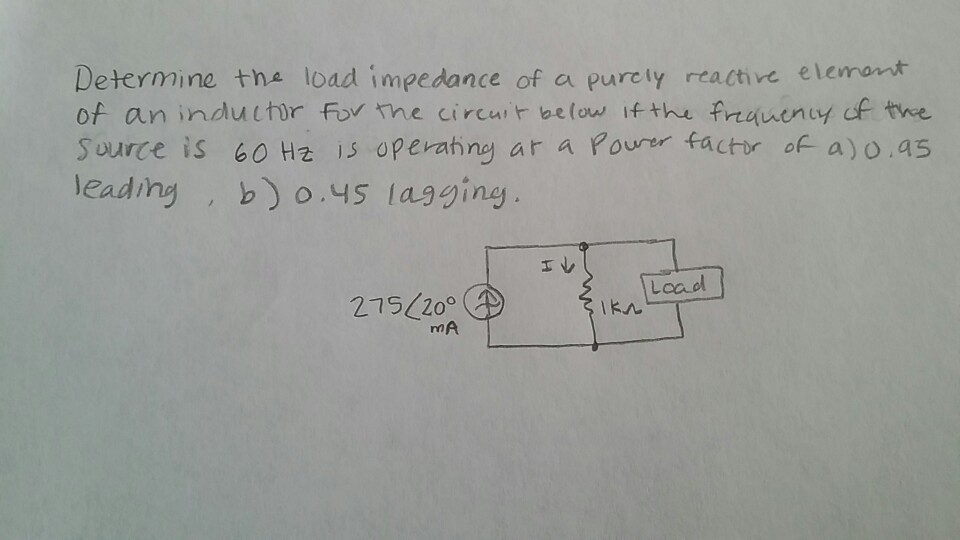 Determine the load impedance of a purely reactive element
of an inductor for the circuit below if the frequency of the
source is 60 Hz is operating at a Power factor of a) 0.95
leading , b) 0.45 lagging.
I ↓
Load
275∠20°
1kΩ
mA